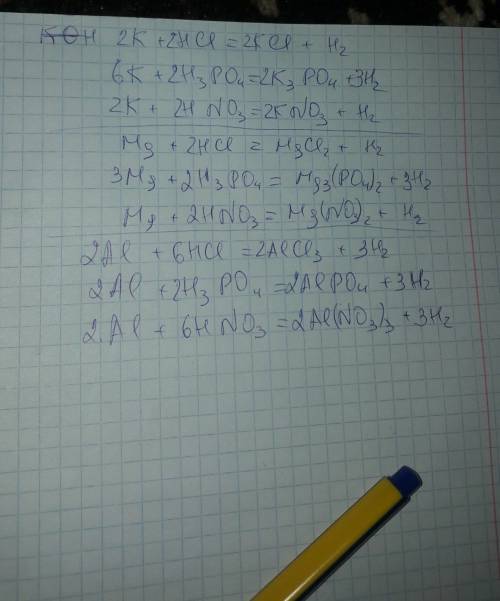 KOH 2K + 2HCl = 2KCl + H₂
6K + 2H₃PO₄ = 2K₃PO₄ + 3H₂
2K + 2HNO₃ = 2KNO₃ + H₂
Mg + 2HCl = MgCl₂ + H₂
3Mg + 2H₃PO₄ = Mg₃(PO₄)₂ + 3H₂
Mg + 2HNO₃ = Mg(NO₃)₂ + H₂
2Al + 6HCl = 2AlCl₃ + 3H₂
2Al + 2H₃PO₄ = 2AlPO₄ + 3H₂
2Al + 6HNO₃ = 2Al(NO₃)₃ + 3H₂